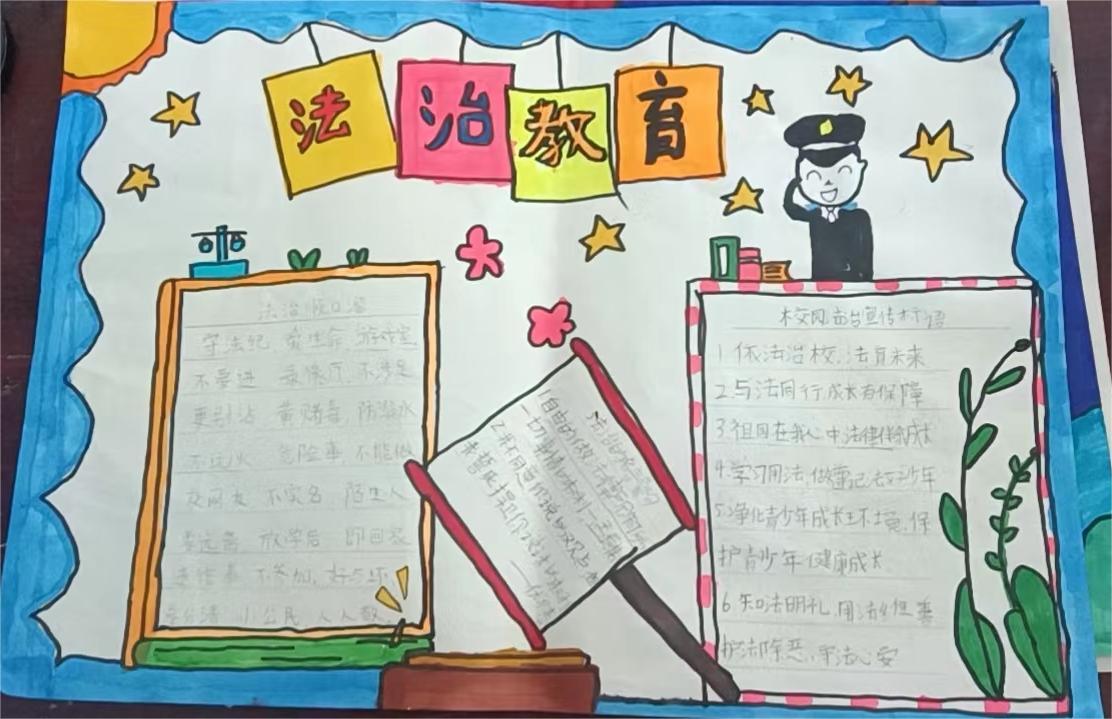 法治教育
法治顺口溜
守法纪 爱生命 游戏室
不要进 录像厅 不涉足
更别沾 黄赌毒 防溺水
不玩火 危险事 不能做
交网友 不实名 陌生人
要远离 放学后 即回家
不参加 好与坏
要分清 小公民 人人敬
法治
自由的做
一切事情的权利
2.我不同意你说的观点
我誓死捍卫你
校园法治宣传标语
1.依法治校,法育未来
2.与法同行成长有保障
3.祖国在我心中法律伴我成长
4.学习用法,做遵纪法好少年
5.净化青少年成长环境,保
护青少年健康成长
6.知法明礼,用法
护法除恶,守法心安